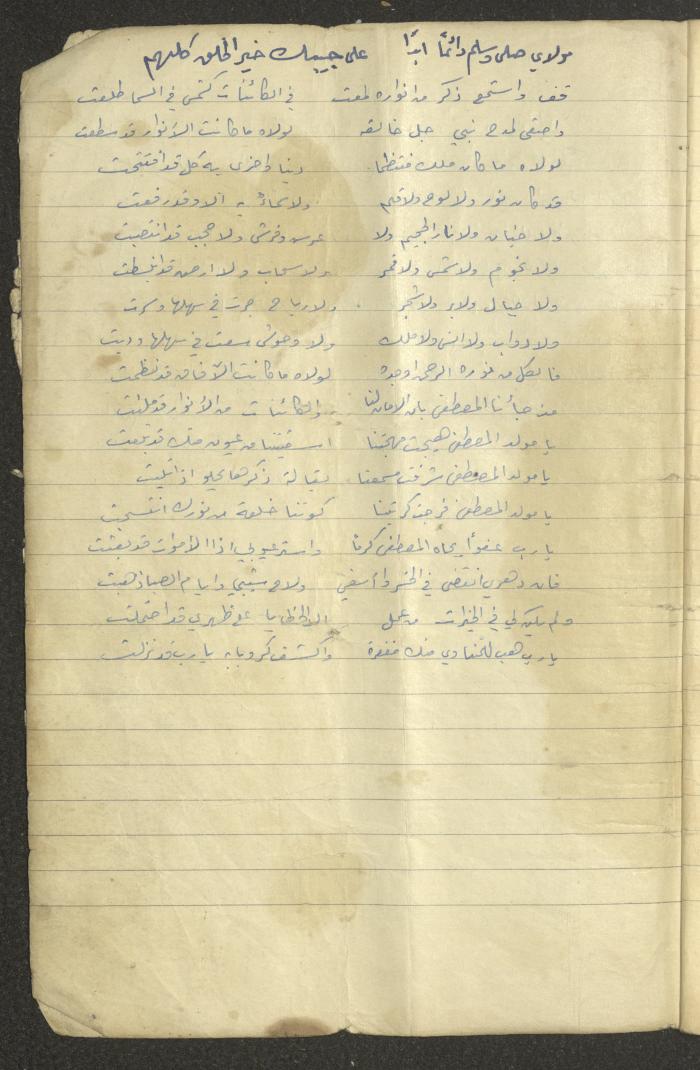 مولاي صلى وسلم دائمًا ابدًا على حبيبك خير الخلق كلهم
قف واستمع ذكر من انواره لمعت في الكائنات كشمس في السما طلعت
واصغى لمدح نبي جل خالقه لولاه ما كانت الأنوار قد سطعت
لولاه ما كان ملك منتظما دنيا واخرى به كل قد افتتحت
قد كان نور ولا لوح ولا قلم ولا سماء به قد رفعت
ولا جنان ولا نار الجحيم ولا عرس وفرش ولا حجب قد انتصبت
ولا نجوم ولا شمس ولا قمر ولا سحاب ولا ارض قد انبسطت
ولا جبال ولا بر ولا شجر ولا رياح جرت في سهلها وسرت
ولا دواب ولا انس ولا ملك ولا وحوش سعت في سهلها ودبت
فالكل من نوره الرحمن اوجده لولاه ما كانت الآفاق قد نظمت
جائنا المصطفى بان الامان لنا والكائنات من الأنوار قد ملئت
يا مولد المصطفى هيجت مهجتنا اسقيتنا من عيون منك قد نبعت
يا مولد المصطفى شرفت مسمعنا ذكرها يحلو اذا تليت
يا مولد المصطفى فرجت كربتنا كسوتنا خلعة من نورك انتسجت
يا رب عفوًا بجاه المصطفى كرمًا واستر عيوبي اذا الأموات قد بعثت
فان دهري انقضى في الخسر وا أسفي ولاح شيبي وايام الصبا ذهبت
ولم يكن لي في الخيرات من عمل الا الخطايا على ظهري قد احتملت
يا رب هب منك مغفرة واكشف كروبا به يا رب قد نزلت